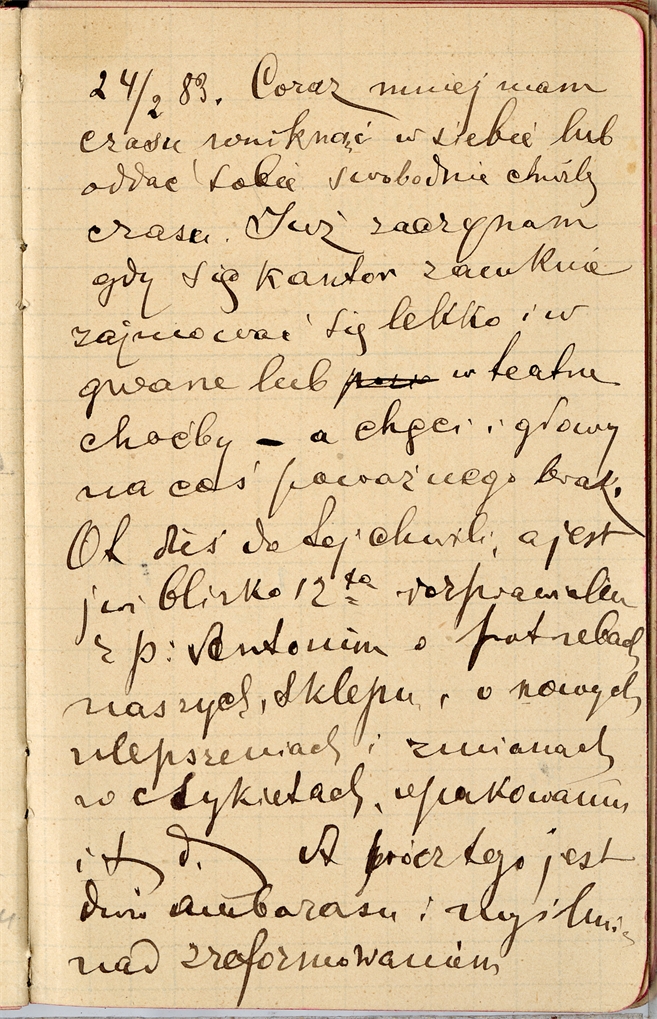 24/2 83. Coraz mniej mam
czasu wniknąć w siebie lub
oddać sobie swobodnie chwilę
czasu. Już zaczynam
gdy się kantor zamknie
zajmować się lekko i w
gwarze lub w teatrze
choćby – a chęci i głowy
na coś poważnego brak.
Ot dziś do tej chwili, a jest
już blisko 12ta rozprawiałem
z p: Antonim o potrzebach
naszych, sklepu, o nowych
ulepszeniach i zmianach
w etykietach, opakowaniu
i t d. A prócz tego jest
dużo ambarasu i
nad zreformowaniem